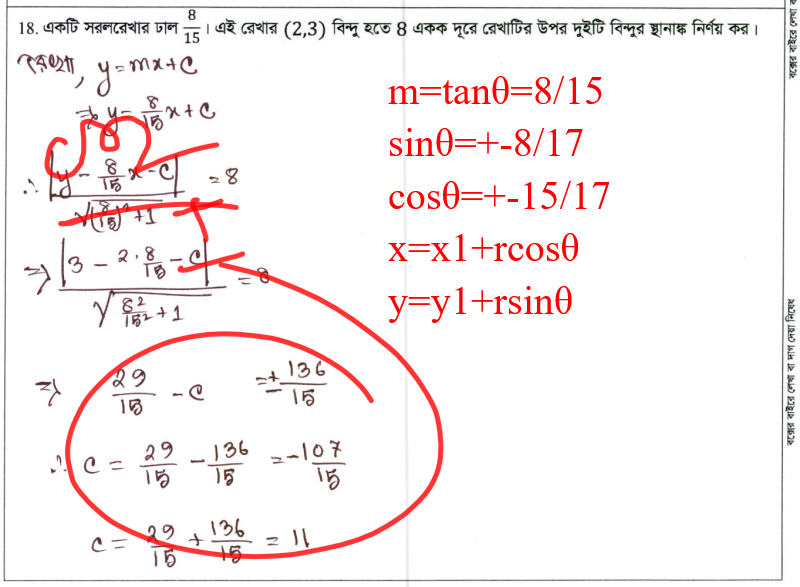 18. একটি সরলরেখার ঢাল 8/15 । এই রেখার (2,3) বিন্দু হতে 8 একক দূরে রেখাটির উপর দুইটি বিন্দুর স্থানাঙ্ক নির্ণয় কর।
রেখা, y=mx+c
⇒ y = 8/15 x + c
∴ |y - 8/15 x - c| / √((8/15)²+1) = 8
⇒ |3 - 2·8/15 - c| / √(8²/15² + 1) = 8
⇒ 29/15 - c = ± 136/15
∴ c = 29/15 - 136/15 = -107/15
c = 29/15 + 136/15 = 11
m=tanθ=8/15
sinθ=+-8/17
cosθ=+-15/17
x=x1+rcosθ
y=y1+rsinθ
বক্সের বাইরে লেখা বা দাগ দেয়া নিষেধ